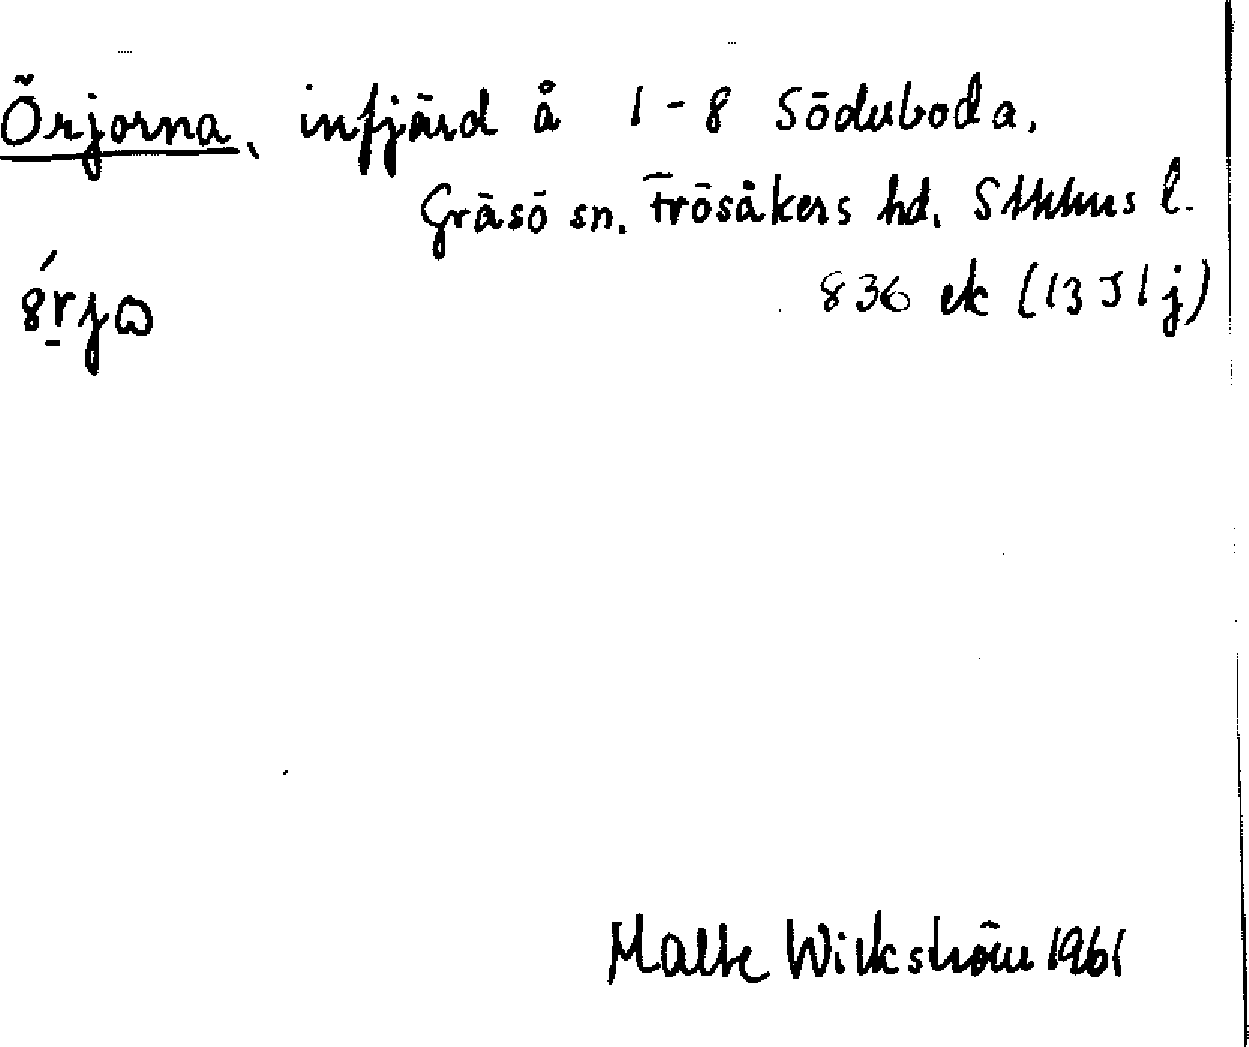 Örjorna, infjärd å 1-8 Söderboda.
Gräsö sn. Frösåkers hd. Sthlms l.
836 ek (13 I 1 j)
Malte Wikström 1961